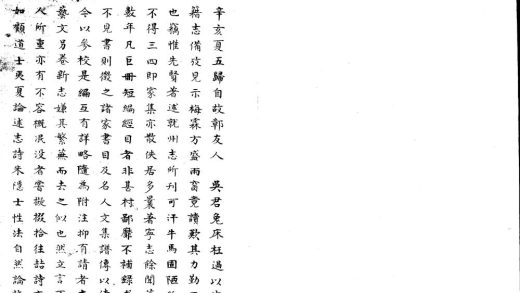 辛亥夏五歸自故鄣友人　吳君兔床枉過以
籍志備攷見示梅霖方盛雨窗竟讀歎其力勤
也竊惟先賢著述就州志所刊可汗牛馬固陋
不得三四即家集亦散佚居多曩著寧志餘聞
數年凡巨冊短編經目者非甚村鄙靡不補錄
不見書則徵之諸家書目及名人文集譜傳以
今以參校是編互有詳略隨為附注抑有請者
藝文另卷新志嫌其繁蕪而去之似也然立言
人所重亦有不容概泯沒者嘗擬掇拾往詰詩
如顧道士夷夏論述志詩朱隱士性法自然論